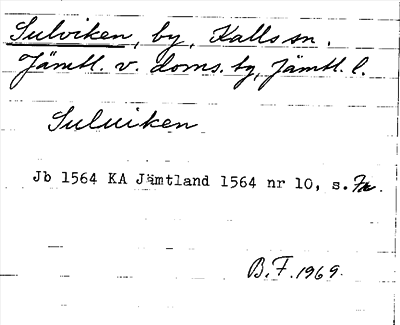 Sulviken, by, Kalls sn.
Jämtl. v. doms. tg, Jämtl. l.
Suluiken
Jb 1564 KA Jämtland 1564 nr 10, s. 7r.
B.F. 1969.